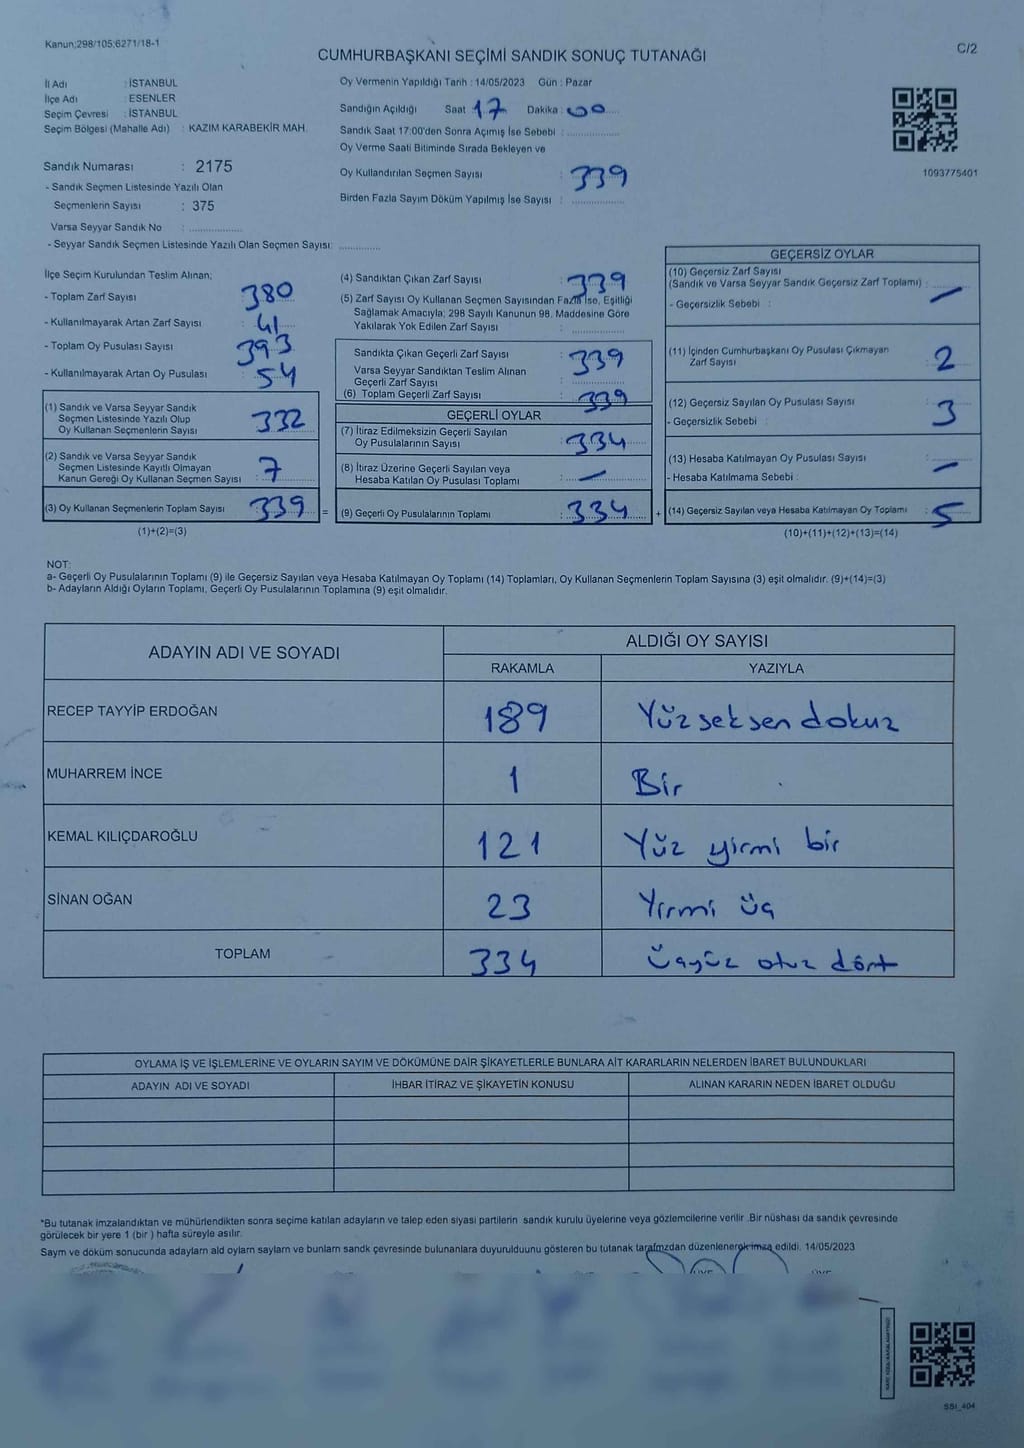 Kanun;298/105;6271/18-1
C/2
CUMHURBAŞKANI SEÇİMİ SANDIK SONUÇ TUTANAĞI
İl Adı : İSTANBUL
İlçe Adı : ESENLER
Seçim Çevresi : İSTANBUL
Seçim Bölgesi (Mahalle Adı) : KAZIM KARABEKİR MAH.
Sandık Numarası : 2175
- Sandık Seçmen Listesinde Yazılı Olan
Seçmenlerin Sayısı : 375
Varsa Seyyar Sandık No : ................
- Seyyar Sandık Seçmen Listesinde Yazılı Olan Seçmen Sayısı: ............
Oy Vermenin Yapıldığı Tarih : 14/05/2023 Gün : Pazar
Sandığın Açıldığı Saat 17 Dakika : 00
Sandık Saat 17:00'den Sonra Açımış İse Sebebi : ................
Oy Verme Saati Bitiminde Sırada Bekleyen ve
Oy Kullandırılan Seçmen Sayısı : 339
Birden Fazla Sayım Döküm Yapılmış İse Sayısı : ................
1093775401
İlçe Seçim Kurulundan Teslim Alınan;
- Toplam Zarf Sayısı : 380
- Kullanılmayarak Artan Zarf Sayısı : 41
- Toplam Oy Pusulası Sayısı : 393
- Kullanılmayarak Artan Oy Pusulası : 54
(1) Sandık ve Varsa Seyyar Sandık
Seçmen Listesinde Yazılı Olup
Oy Kullanan Seçmenlerin Sayısı : 332
(2) Sandık ve Varsa Seyyar Sandık
Seçmen Listesinde Kayıtlı Olmayan
Kanun Gereği Oy Kullanan Seçmen Sayısı : 7
(3) Oy Kullanan Seçmenlerin Toplam Sayısı : 339 =
(1)+(2)=(3)
(4) Sandıktan Çıkan Zarf Sayısı : 339
(5) Zarf Sayısı Oy Kullanan Seçmen Sayısından Fazla İse, Eşitliği
Sağlamak Amacıyla; 298 Sayılı Kanunun 98. Maddesine Göre
Yakılarak Yok Edilen Zarf Sayısı : ................
Sandıkta Çıkan Geçerli Zarf Sayısı : 339
Varsa Seyyar Sandıktan Teslim Alınan
Geçerli Zarf Sayısı : ................
(6) Toplam Geçerli Zarf Sayısı : 339
GEÇERLİ OYLAR
(7) İtiraz Edilmeksizin Geçerli Sayılan
Oy Pusulalarının Sayısı : 334
(8) İtiraz Üzerine Geçerli Sayılan veya
Hesaba Katılan Oy Pusulası Toplamı : —
(9) Geçerli Oy Pusulalarının Toplamı : 334 +
GEÇERSİZ OYLAR
(10) Geçersiz Zarf Sayısı
(Sandık ve Varsa Seyyar Sandık Geçersiz Zarf Toplamı) : —
- Geçersizlik Sebebi :
(11) İçinden Cumhurbaşkanı Oy Pusulası Çıkmayan
Zarf Sayısı : 2
(12) Geçersiz Sayılan Oy Pusulası Sayısı : 3
- Geçersizlik Sebebi :
(13) Hesaba Katılmayan Oy Pusulası Sayısı : —
- Hesaba Katılmama Sebebi :
(14) Geçersiz Sayılan veya Hesaba Katılmayan Oy Toplamı : 5
(10)+(11)+(12)+(13)=(14)
NOT:
a- Geçerli Oy Pusulalarının Toplamı (9) ile Geçersiz Sayılan veya Hesaba Katılmayan Oy Toplamı (14) Toplamları, Oy Kullanan Seçmenlerin Toplam Sayısına (3) eşit olmalıdır. (9)+(14)=(3)
b- Adayların Aldığı Oyların Toplamı, Geçerli Oy Pusulalarının Toplamına (9) eşit olmalıdır.
ADAYIN ADI VE SOYADI
ALDIĞI OY SAYISI
RAKAMLA YAZIYLA
RECEP TAYYİP ERDOĞAN 189 Yüz seksen dokuz
MUHARREM İNCE 1 Bir
KEMAL KILIÇDAROĞLU 121 Yüz yirmi bir
SİNAN OĞAN 23 Yirmi üç
TOPLAM 334 Üçyüz otuz dört
OYLAMA İŞ VE İŞLEMLERİNE VE OYLARIN SAYIM VE DÖKÜMÜNE DAİR ŞİKAYETLERLE BUNLARA AİT KARARLARIN NELERDEN İBARET BULUNDUKLARI
ADAYIN ADI VE SOYADI İHBAR İTİRAZ VE ŞİKAYETİN KONUSU ALINAN KARARIN NEDEN İBARET OLDUĞU
*Bu tutanak imzalandıktan ve mühürlendikten sonra seçime katılan adayların ve talep eden siyasi partilerin sandık kurulu üyelerine veya gözlemcilerine verilir .Bir nüshası da sandık çevresinde
görülecek bir yere 1 (bir ) hafta süreyle asılır.
Saym ve döküm sonucunda adaylarn ald oylarn saylarn ve bunlarn sandk çevresinde bulunanlara duyurulduunu gösteren bu tutanak tarafmzdan düzenlenerek imza edildi. 14/05/2023
ÜYE ÜYE
SSI_404